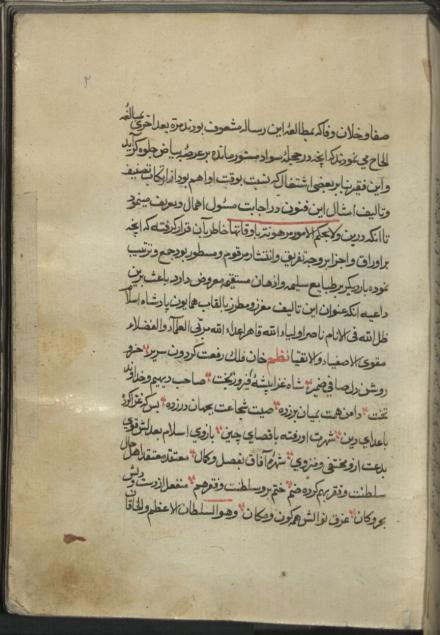 ۲
صفا و خلان وفا که بمطالعهٔ این رساله مشعوف بودند مرة بعد اخری مبالغه
الحاح می نمودند که آنچه در حجلهٔ سواد مستور مانده بر عرصهٔ بیاض جلوه کر آید
و این فقیر بنا بر بعضی اشتغال که نسبت بوقت او اهم بود از ارتکاب تصنیف
و تالیف امثال این فنون در اجابت مسئول اهمال و تعویق مینمود
تا آنکه درین ولا بحکم الامور مرهونة باوقاتها خاطر بر آن قرار کرفته که آنچه
بر اوراق و اجزا بر وجه تفریق و انتشار مرقوم و مسطور بود جمع و ترتیب
نموده بار دیکر بر طبایع سلیمه و اذهان مستقیمه معروض دارد باعث برین
داعیه آنکه عنوان این تالیف معزز و مطرز بالقاب همایون پادشاه اسلام
ظل الله فی الانام ناصر اولیاء الله قاهر اعداء الله مربی العلماء و الفضلاء
مقوی الاصفیاء و الاتقیا نظم خان فلک رفعت کردون سریر خسرو
روشن دل صافی ضمیر شاه غزا پیشهٔ فیروز بخت صاحب دیهیم و خداوند
تخت دامن همت بمیان بر زده صیت شجاعت بجهان در زده بس که غزا کرد
باعدای دین شهرت او رفته باقصای چین بازوی اسلام بعدلش قوی
بدعت ازو مختفی و منزوی شهرهٔ آفاق بفضل و کمال معتقد معتقد اهل حال
سلطنت و فقر بهم کرده ضم ختم برو سلطنت و فقر هم منفعل از دست و دلش
بحر و کان غرق نوالش همه کون و مکان وهو السلطان الاعظم والخاقان